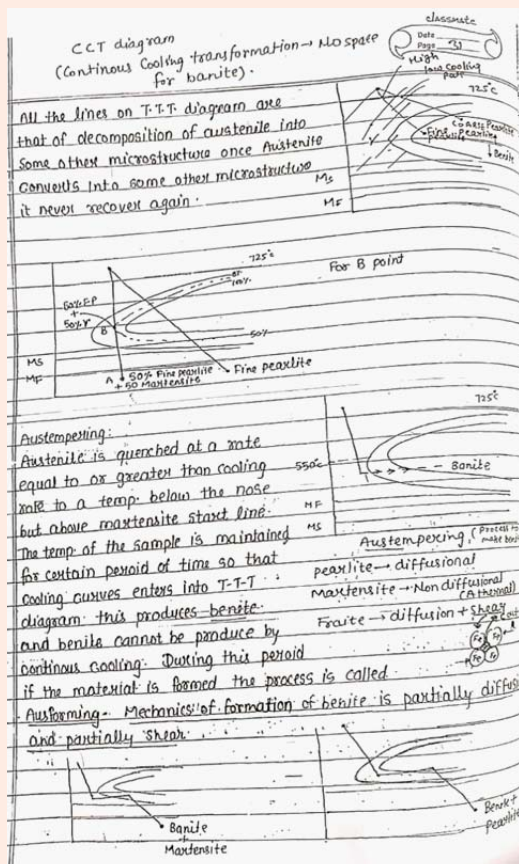 classmate
Date
Page 31
CCT diagram
(Continous Cooling transformation → No space
for banite).
High
low cooling
725°C
All the lines on T.T.T. diagram are
that of decomposition of austenile into
Some other microstructure once Austenite
Converts into some other microstructure
it never recover again.
Coarse Pearlite
Fine Pearlite
Benite
MS
MF
725°C
For B point
50% F.P
+
50% γ
B
100%
50%
MS
MF
A
50% Fine pearlite
+ 50 Martensite
Fine pearlite
Austempering:
Austenite is quenched at a rate
equal to or greater than cooling
rate to a temp. below the nose
but above martensite start line.
The temp of the sample is maintained
for certain peroid of time so that
cooling curves enters into T-T-T
diagram this produces benite.
and benite cannot be produce by
continous cooling. During this peroid
if the material is formed the process is called
Ausforming. Mechanics of formation of benite is partially
and partially shear.
725°C
550°C
Banite
MF
MS
Austempering. (Process to
make
pearlite → diffusional
Martensite → Non diffusional
(Athermal)
→ diffusion + shear
Fe
Fe
Fe
Fe
Banite
+
Martensite
Benite +